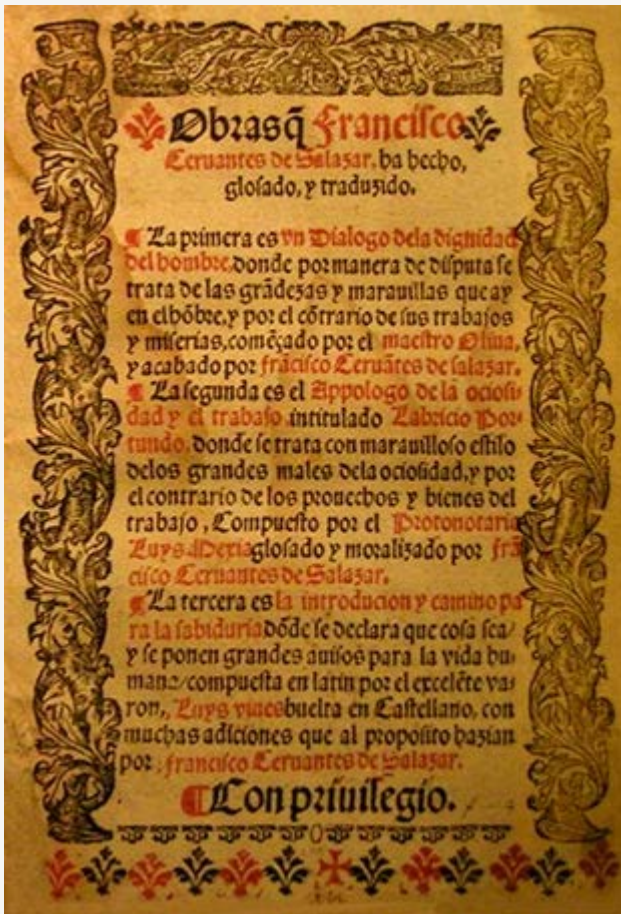 Obras q̃ Francisco
Ceruantes de Salazar, ha hecho,
glosado, y traduzido.
¶ La primera es vn Dialogo dela dignidad
del hombre, donde por manera de disputa se
trata de las grãdezas y marauillas que ay
en el hõbre, y por el cõtrario de sus trabajos
y miserias, començado por el maestro Oliua,
y acabado por frãcisco Ceruãtes de salazar.
¶ La segunda es el Appologo de la ociosi-
dad y el trabajo, intitulado Labricio Por-
tundo, donde se trata con marauilloso estilo
delos grandes males dela ociosidad, y por
el contrario de los prouechos y bienes del
trabajo, Compuesto por el Protonotario
Luys Mexia glosado y moralizado por frã
cisco Ceruantes de Salazar.
¶ La tercera es la introducion y camino pa
ra la sabiduria dõde se declara que cosa sea/
y se ponen grandes auisos para la vida hu-
mana/compuesta en latin por el excelẽte va-
ron, Luys viues buelta en Castellano, con
muchas adiciones que al proposito hazian
por francisco Ceruantes de Salazar.
¶ Con priuilegio.